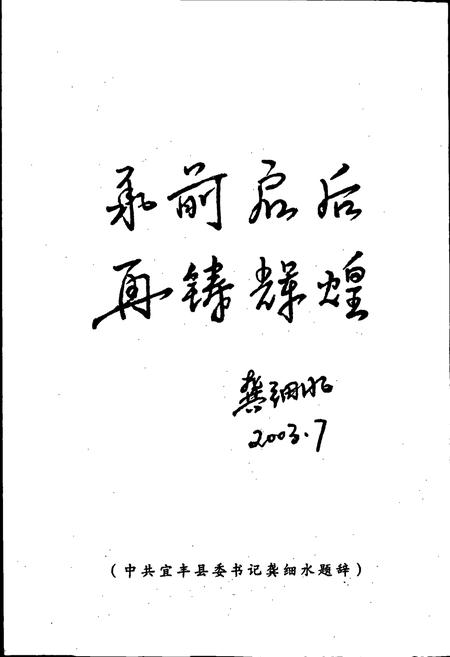 承前启后
再铸辉煌
龚细水
2003.7
(中共宜丰县委书记龚细水题辞)